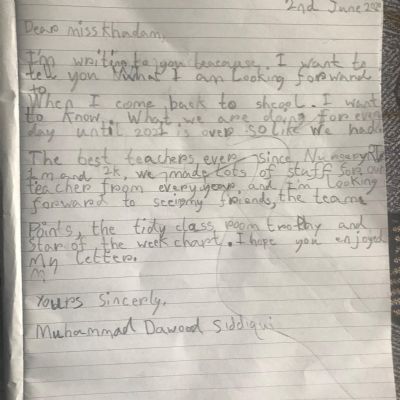 2nd June 202
Dear miss Khadam,
I'm writing to you beacause. I want to
tell you what I am looking forward
to.
When I come back to shcool. I want
to know. What we are doing for every
day until 2021 is over so like we had
The best teachers ever since Nursery
1m and 2k. we made lots of stuff for our
teacher from every year, and I'm looking
forward to seeing my friends, the team
Points, the tidy class room trothy and
star of the week chart. I hope you enjoyed
My letter.
Yours sincerly,
Muhammad Dawood Siddiqui